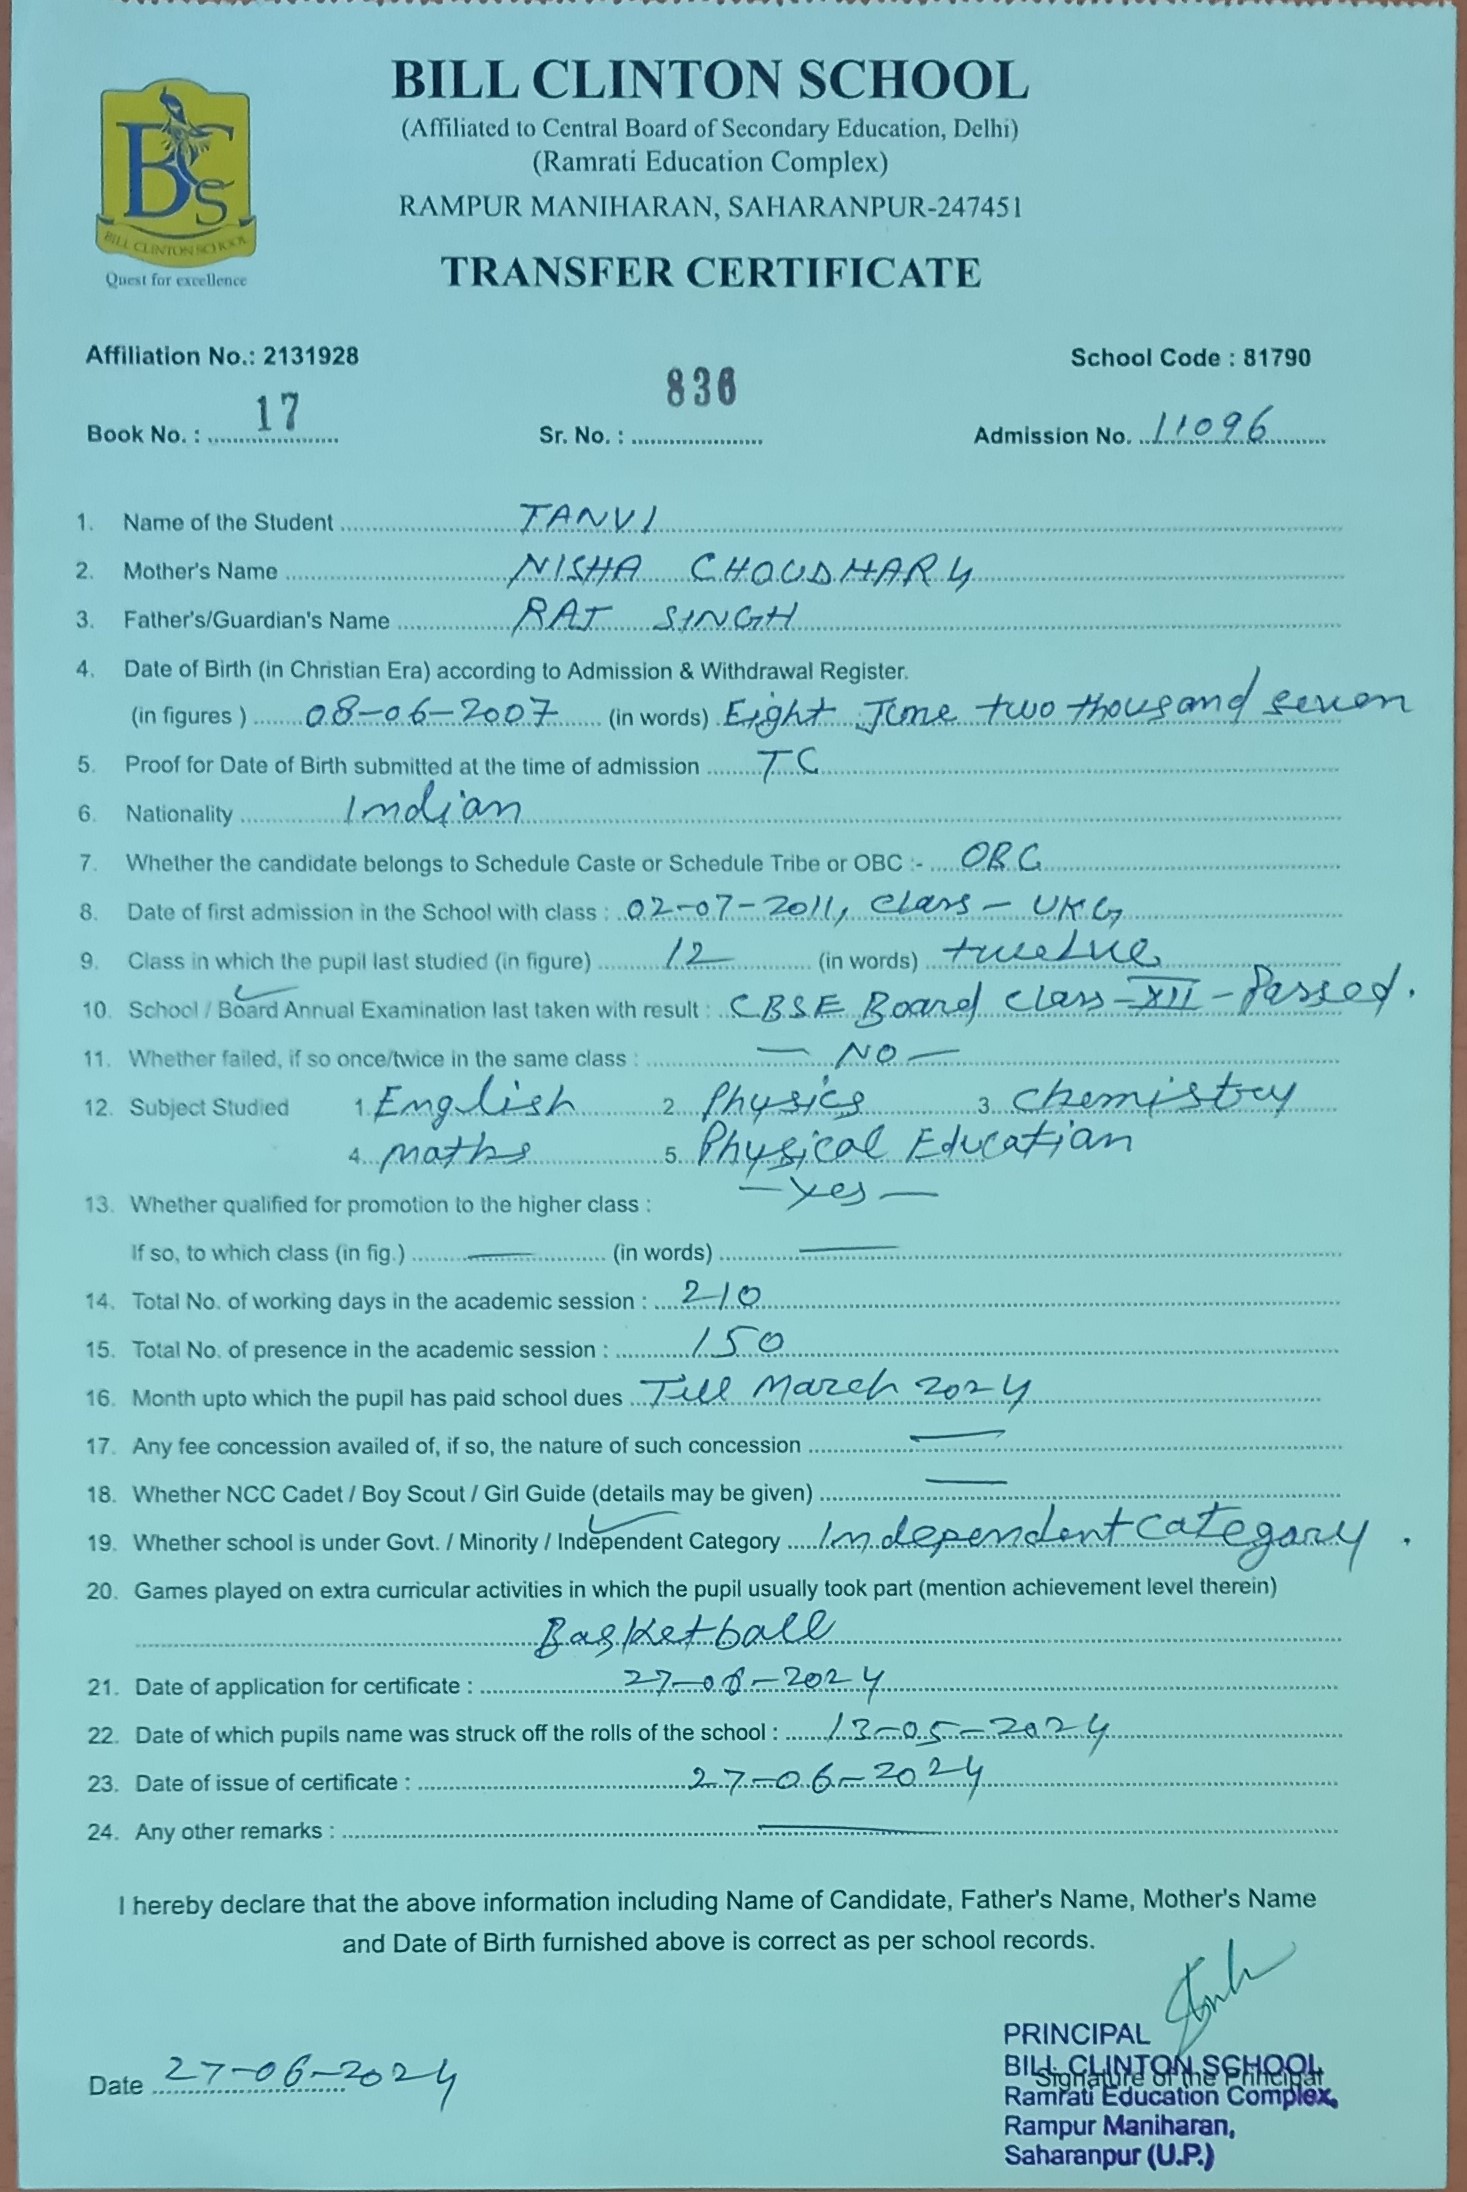 BILL CLINTON SCHOOL
(Affiliated to Central Board of Secondary Education, Delhi)
(Ramrati Education Complex)
RAMPUR MANIHARAN, SAHARANPUR-247451
BCS
BILL CLINTON SCHOOL
Quest for excellence
TRANSFER CERTIFICATE
Affiliation No.: 2131928 School Code : 81790
Book No. : 17 Sr. No. : 836 Admission No. 11096
1. Name of the Student TANVI
2. Mother's Name NISHA CHOUDHARY
3. Father's/Guardian's Name RAJ SINGH
4. Date of Birth (in Christian Era) according to Admission & Withdrawal Register.
(in figures ) 08-06-2007 (in words) Eight June two thousand seven
5. Proof for Date of Birth submitted at the time of admission TC
6. Nationality Indian
7. Whether the candidate belongs to Schedule Caste or Schedule Tribe or OBC :- OBC
8. Date of first admission in the School with class : 02-07-2011, class - UKG
9. Class in which the pupil last studied (in figure) 12 (in words) twelve
10. School / Board Annual Examination last taken with result : CBSE Board class - XII - Passed.
11. Whether failed, if so once/twice in the same class : — NO —
12. Subject Studied 1. English 2. Physics 3. Chemistry
4. maths 5. Physical Education
13. Whether qualified for promotion to the higher class : — yes —
If so, to which class (in fig.) — (in words) —
14. Total No. of working days in the academic session : 210
15. Total No. of presence in the academic session : 150
16. Month upto which the pupil has paid school dues Till March 2024
17. Any fee concession availed of, if so, the nature of such concession —
18. Whether NCC Cadet / Boy Scout / Girl Guide (details may be given) —
19. Whether school is under Govt. / Minority / Independent Category Independent category.
20. Games played on extra curricular activities in which the pupil usually took part (mention achievement level therein)
Basketball
21. Date of application for certificate : 27-06-2024
22. Date of which pupils name was struck off the rolls of the school : 13-05-2024
23. Date of issue of certificate : 27-06-2024
24. Any other remarks : —
I hereby declare that the above information including Name of Candidate, Father's Name, Mother's Name
and Date of Birth furnished above is correct as per school records.
Date 27-06-2024
PRINCIPAL
BILL CLINTON SCHOOL
Signature of the Principal
Ramrati Education Complex,
Rampur Maniharan,
Saharanpur (U.P.)